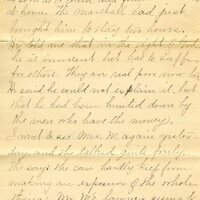 at home. The Marshall had just
brought him to stay two hours.
He told me that in the sight of God
he is innocent but had to suffer
for others. They are real poor now too
He said he could not explain it, but
that he had been hunted down by
the men who have the money.
I went to see Mrs. M. again yester-
day, and she talked quite freely.
She says the can hardly keep from
making an exposure of the whole